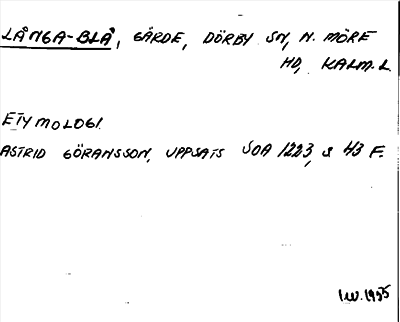 LÅNGA-BLÅ, GÄRDE, DÖRBY SN, N. MÖRE
HD, KALM. L.
ETYMOLOGI.
ASTRID GÖRANSSON, UPPSATS SOA 1223, S 43 F.
I.W. 1955